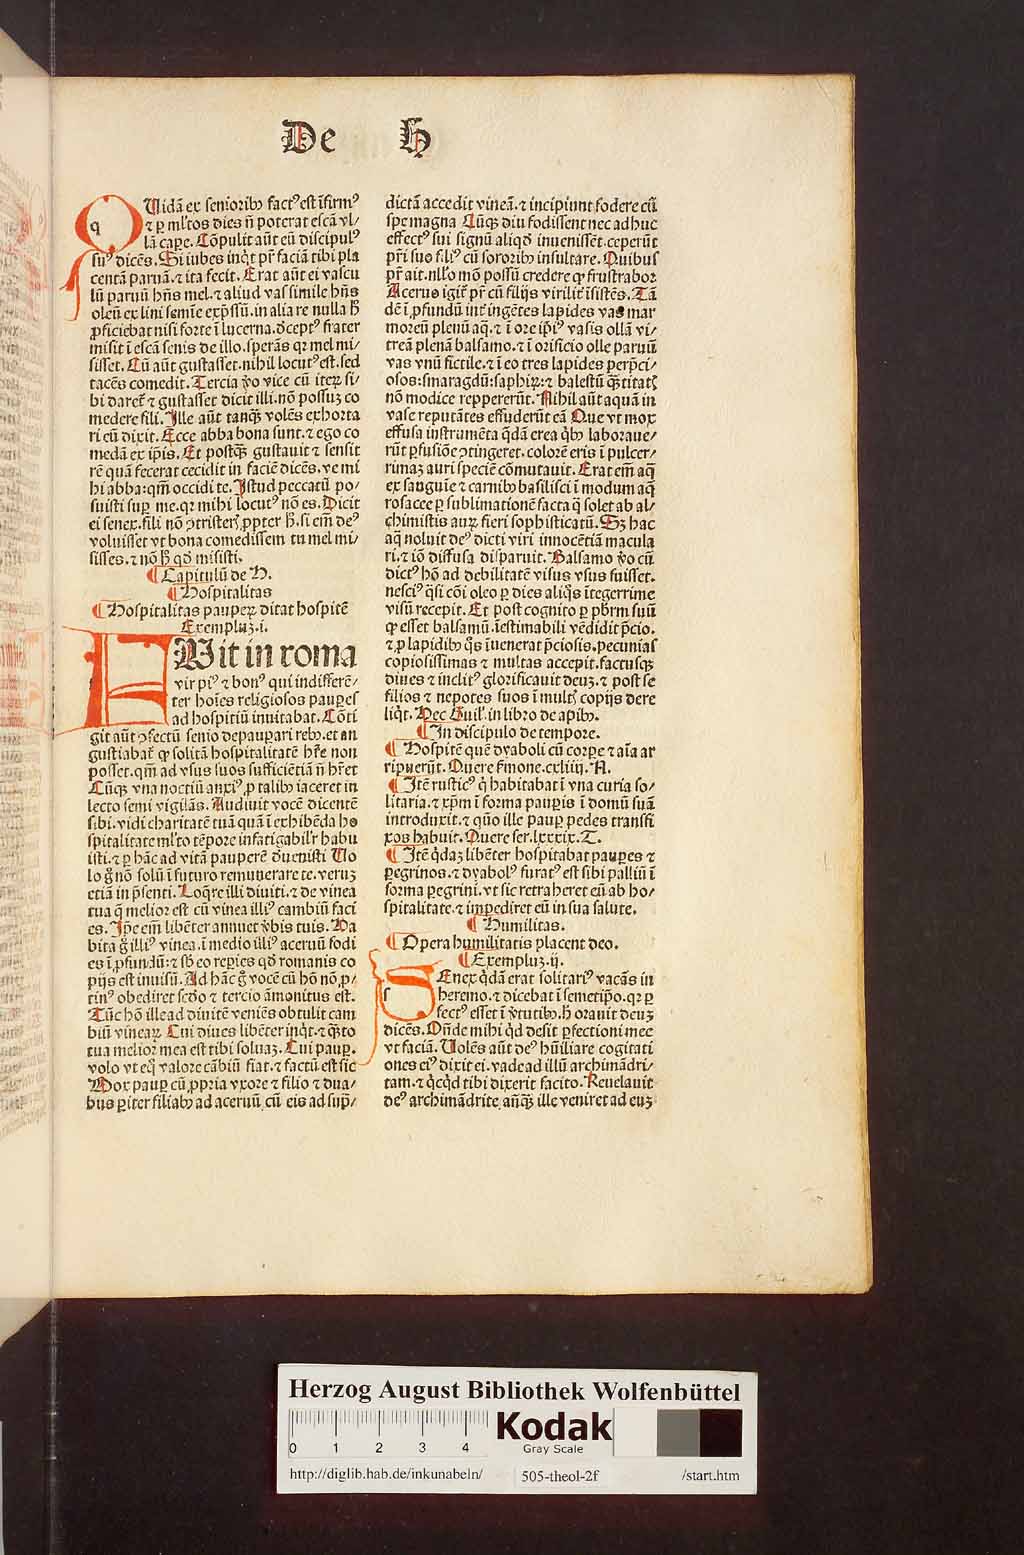 De H
QUidā ex senioribꝫ factꝰ est īfirmꝰ
⁊ ꝑ ml'tos dies n̄ poterat escā vl/
lā cape. Cōpulit aūt eū discipulꝰ
suꝰ dicēs. Si iubes inq̇t pr̄ faciā tibi pla
centā paruā. ⁊ ita fecit. Erat aūt ei vascu
lū paruū hn̄s mel. ⁊ aliud vas simile hn̄s
oleū ex lini semīe exp̄ssū. in alia re nulla h̄
ꝓficiebat nisi forte ī lucerna. d̄ceptꝰ frater
misit ī escā senis de illo. sperās qꝛ mel mi/
sisset. Cū aūt gustasset. nihil locutꝰ est. sed
tacēs comedit. Tercia v̄o vice cū iteꝝ si/
bi daret ⁊ gustasset dicit illi. nō possuꝫ co
medere fili. Ille aūt tanqꝫ volēs exhorta
ri eū dixit. Ecce abba bona sunt. ⁊ ego co
medā ex ip̄is. Et postqꝫ gustauit ⁊ sensit
rē quā fecerat cecidit in faciē dicēs. ve mi
hi abba: qm̄ occidi te. Istud peccatū po/
suisti suꝑ me. qꝛ mihi locutꝰ nō es. Dicit
ei senex. fili nō ꝯtristerꝭ ꝓpter h̄. si em̄ deꝰ
voluisset vt bona comedissem tu mel mi/
sisses. ⁊ nō h̄ qd̄ misisti.
¶ Capitulū de H.
¶ Hospitalitas
¶ Hospitalitas paupeꝝ ditat hospitē
Exempluꝫ .i.
FUit in roma
vir piꝰ ⁊ bonꝰ qui indifferē/
ter hoīes religiosos pauꝑes
ad hospitiū inuitabat. Cōti
git aūt ꝯfectū senio depaupari rebꝫ. et an
gustiabat̄ ꝙ solitā hospitalitatē hr̄e non
posset. qm̄ ad vsus suos sufficiētiā n̄ hr̄et
Cūqꝫ vna noctiū anxiꝰ ꝓ talibꝫ iaceret in
lecto semi vigilās. Audiuit vocē dicentē
sibi. vidi charitatē tuā quā ī exhibēda ho
spitalitate ml'to tēpore infatigabil'r habu
isti. ⁊ ꝑ hāc ad vitā pauperē d̄uenisti Uo
lo g̊ nō solū ī futuro remunerare te. veruꝫ
etiā in p̄senti. Loq̄re illi diuiti. ⁊ de vinea
tua q̄ melior est cū vinea illiꝰ cambiū faci
es. Ip̄e em̄ libēter annuet v̄bis tuis. Ha
bita g̊ illiꝰ vinea. ī medio illiꝰ aceruū fodi
es ī ꝓfundū: ⁊ sb̄ eo reꝑies qd̄ romanis co
pijs est inuisū. Ad hāc g̊ vocē cū hō nō ꝓ/
tinꝰ obediret scd̄o ⁊ tercio āmonitus est.
Tūc hō ille ad diuitē veniēs obtulit cam
biū vineaꝝ. Cui diues libēter inq̇t. ⁊ qꝫto
tua melior mea est tibi soluaꝫ. Cui pauꝑ.
volo vt eq̄ valore cābiū fiat. ⁊ factū est sic
Mox pauꝑ cū ꝓpria vxore ⁊ filio ⁊ dua/
bus ꝑiter filiabꝫ ad aceruū. cū eis ad sup̄/
dictā accedit vineā. ⁊ incipiunt fodere cū
spe magna Cūqꝫ diu fodissent nec adhuc
effectꝰ sui signū aliqd̄ inuenisset. ceperūt
pr̄i suo filiꝰ cū sororibꝫ insultare. Quibus
pr̄ ait. nll'o mō possū credere ꝙ frustrabor
Acerus igit̄ pr̄ cū filijs virilit̄ īsistēs. Tā
dē ī ꝓfundū int̄ ingētes lapides vas mar
moreū plenū aq̄. ⁊ ī ore ip̄iꝰ vasis ollā vi/
treā plenā balsamo. ⁊ ī orificio olle paruū
vas vnū fictile. ⁊ ī eo tres lapides perp̄ci/
osos: smaragdū: saphiꝝ: ⁊ balestū qꝫtitatꝭ
nō modice reppererūt. Nihil aūt aquā in
vase reputātes effuderūt eā Que vt mox
effusa instrumēta q̄dā erea q̇bꝫ laboraue/
rūt ꝑfusiōe ꝯtingeret. colorē eris ī pulcer/
rimaꝫ auri speciē cōmutauit. Erat em̄ aq̄
ex sanguīe ⁊ carnibꝫ basilisci ī modum aq̄
rosacee ꝑ sublimationē facta q̄ solet ab al/
chimistis auꝝ fieri sophisticatū. Sꝫ hac
aq̄ noluit deꝰ dicti viri innocētiā macula
ri. ⁊ iō diffusa disparuit. Balsamo v̄o cū
dictꝰ hō ad debilitatē visus vsus fuisset.
nesciꝰ q̄si cōi oleo ꝑ dies aliq̄s ītegerrime
visū recepit. Et post cognito ꝑ pb̄rm suū
ꝙ esset balsamū. īestimabili vēdidit p̄cio.
⁊ ꝓ lapidibꝫ q̄s īuenerat p̄ciosis. pecunias
copiosissimas ⁊ multas accepit. factusqꝫ
diues ⁊ inclitꝰ glorificauit deuꝫ. ⁊ post se
filios ⁊ nepotes suos ī multꝭ copijs dere
liq̇t. Hec Guil'. in libro de apibꝫ.
¶ In discipulo de tempore.
¶ Hospitē quē dyaboli cū corpe ⁊ aīa ar
ripuerūt. Quere ẜmone. cxliiij. A.
¶ Itē rusticꝰ q̇ habitabat ī vna curia so/
litaria. ⁊ xp̄m ī forma pauꝑis ī domū suā
introduxit. ⁊ quō ille pauꝑ pedes transfi
xos habuit. Quere ser. lxxxix. T.
¶ Itē q̇daꝫ libēter hospitabat pauꝑes ⁊
ꝑegrinos. ⁊ dyabolꝰ furatꝰ est sibi palliū ī
forma ꝑegrini. vt sic retraheret eū ab ho/
spitalitate. ⁊ impediret eū in sua salute.
¶ Humilitas.
¶ Opera humilitatis placent deo.
¶ Exempluꝫ .ij.
SEnex q̇dā erat solitariꝰ vacās in
heremo. ⁊ dicebat ī semetip̄o. qꝛ ꝑ
fectꝰ esset ī v̄tutibꝫ. h̄ orauit deuꝫ
dicēs. On̄de mihi q̇d desit ꝑfectioni mee
vt faciā. Uolēs aūt deꝰ hūiliare cogitati
ones eiꝰ dixit ei. vade ad illū archimādri/
tam. ⁊ q̇cq̇d tibi dixerit facito. Reuelauit
deꝰ archimādrite. añqꝫ ille veniret ad euꝫ
Herzog August Bibliothek Wolfenbüttel
0 1 2 3 4
Kodak
Gray Scale
http://diglib.hab.de/inkunabeln/ 505-theol-2f /start.htm